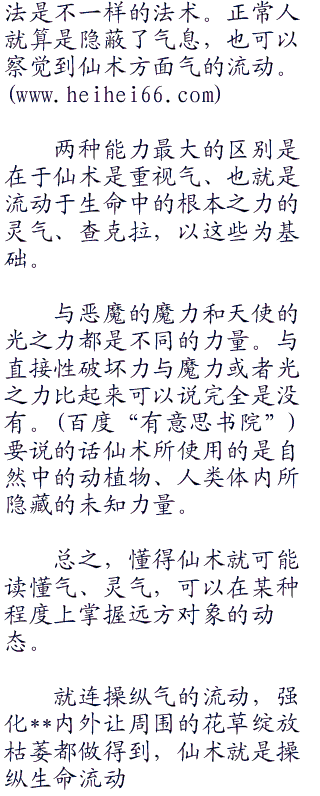 法是不一样的法术。正常人
就算是隐蔽了气息，也可以
察觉到仙术方面气的流动。
(www.heihei66.com)
两种能力最大的区别是
在于仙术是重视气、也就是
流动于生命中的根本之力的
灵气、查克拉，以这些为基
础。
与恶魔的魔力和天使的
光之力都是不同的力量。与
直接性破坏力与魔力或者光
之力比起来可以说完全是没
有。(百度“有意思书院”)
要说的话仙术所使用的是自
然中的动植物、人类体内所
隐藏的未知力量。
总之，懂得仙术就可能
读懂气、灵气，可以在某种
程度上掌握远方对象的动
态。
就连操纵气的流动，强
化**内外让周围的花草绽放
枯萎都做得到，仙术就是操
纵生命流动